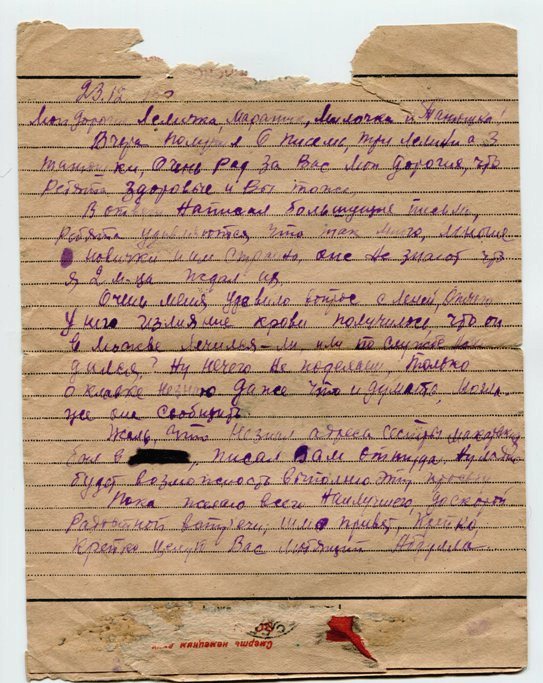 23.IX
Мои дорогие Лемочка, Маратик, Милочка и Танюшка!
Вчера получил 6 писем, три Лемины а 3
Танюшки, Очень Рад за Вас мои дорогия, что
Ребята здоровые и Вы тоже.
В ответ Написал большущие письма,
Ребята удивляются что так много, многие
новички и им странно, они не знают что
я 2 м-ца ждал их.
Очень меня удивило вопрос с Леней,
У него излияние крови получилось, что он
в Москве лечился-ли, или по службе
дился? Ну нечего не поделаеш, только
о клавке незнаю даже что и думать, могла
же она сообщить
Жаль, что незнал адреса сестры
был в писал Вам откуда, Ну
будет возможность выполню эту просьбу
Пока желаю всего Наилучшего до скорой
Радостной встречи, шлю привет, Крепко
Крепко целую Вас любящий Абрулла
Смерть немецким